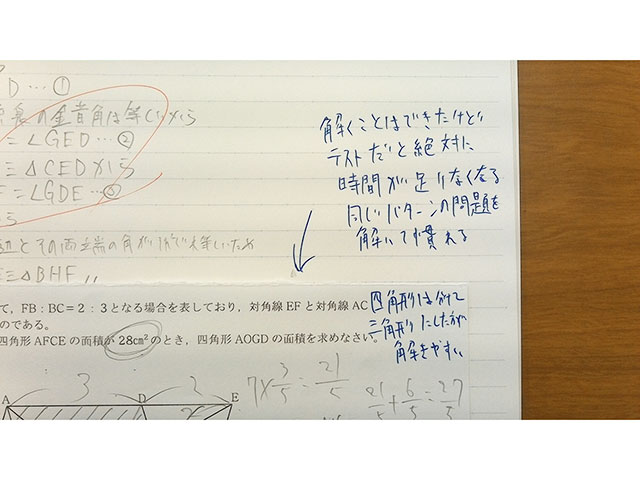 D…①
の錯角は等しいから
=∠GED…②
≡△CEDから
=∠GDE…③
から
辺とその両端の角がそれぞれ等しいため
≡△BHF〃
解くことはできたけど
テストだと絶対に
時間が足りなくなる
同じパターンの問題を
解いて慣れる
て,FB:BC=2:3となる場合を表しており,対角線EFと対角線AC
のである。
四角形AFCEの面積が28cm²のとき,四角形AOGDの面積を求めなさい。
四角形は分けて
三角形にした方が
解きやすい
3 2
7×3/5=21/5
21/5+6/5=27/5
A D E